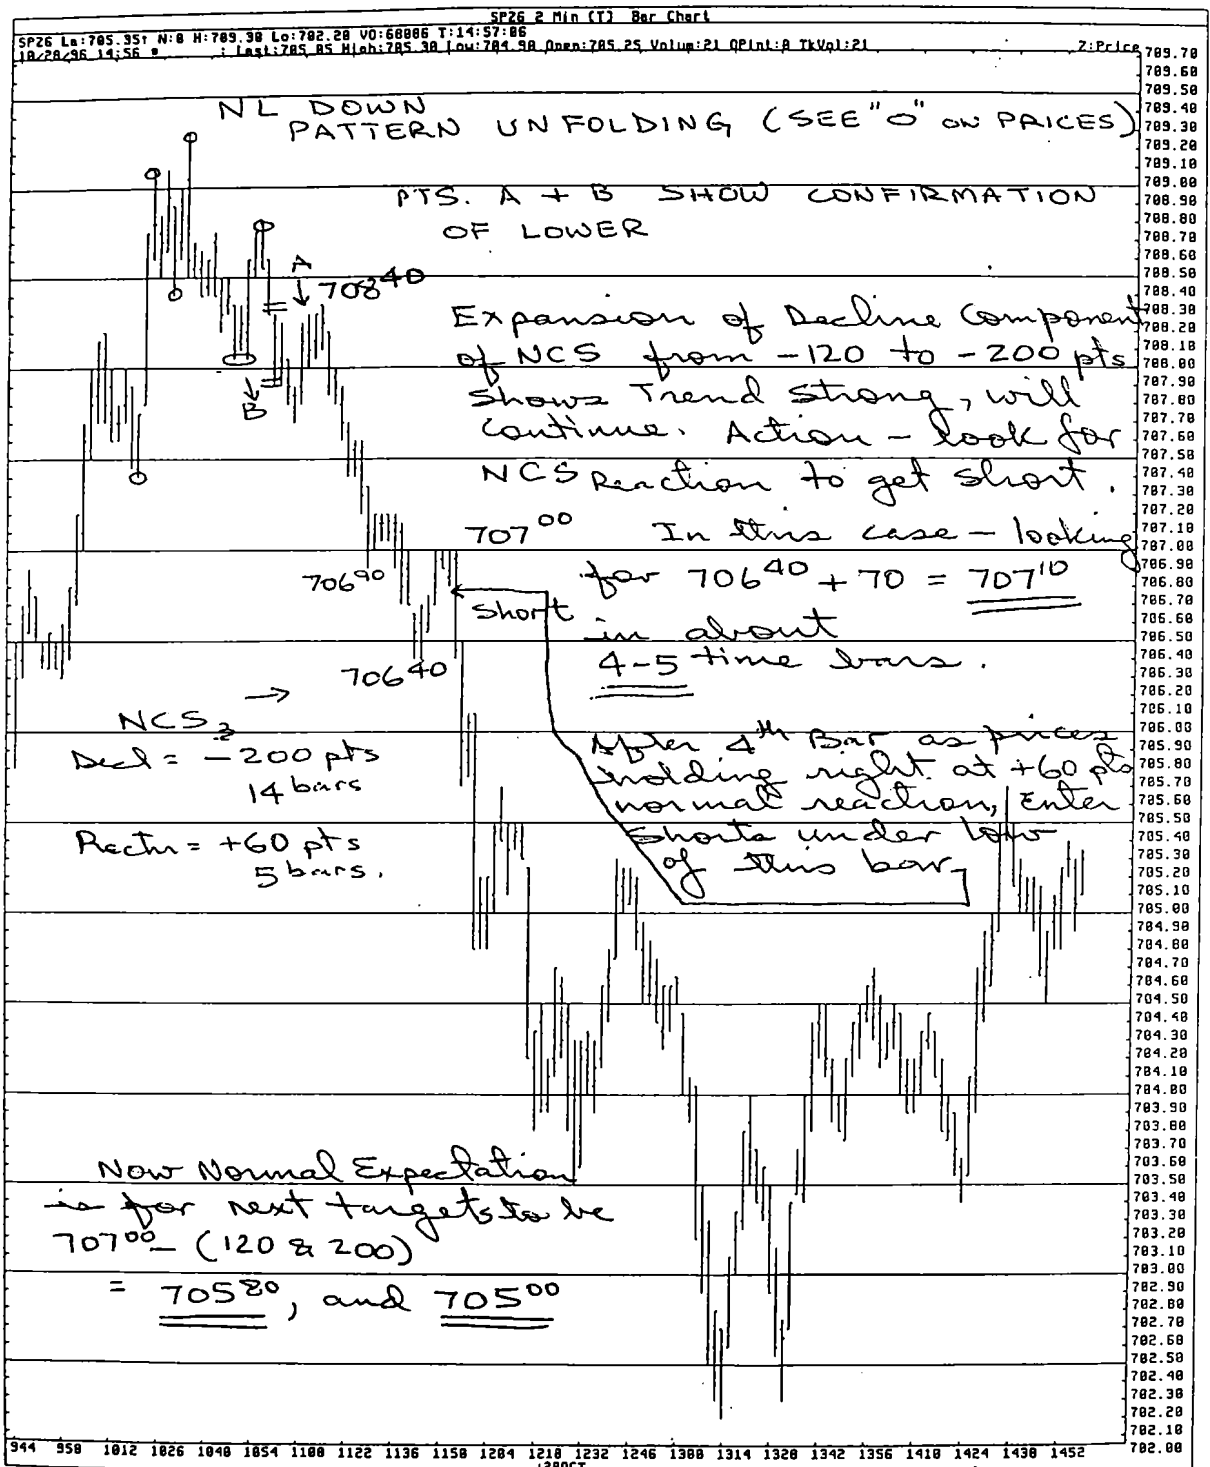 SPZ6 2 Min (T) Bar Chart
SPZ6 La:705.35↑ N:0 H:709.30 Lo:702.20 VO:60006 T:14:57:06
10/28/96 14:56 : Last:705.05 High:705.30 Low:704.90 Open:705.25 Volum:21 OPInt:0 TkVol:21 Z:Price
NL DOWN
PATTERN UNFOLDING (SEE "O" ON PRICES)
PTS. A + B SHOW CONFIRMATION
OF LOWER
A
708 40
B
Expansion of Decline Component
of NCS from -120 to -200 pts
shows Trend strong, will
continue. Action - look for
NCS Reaction to get short.
707 00
In this case - looking
for 706 40 + 70 = 707 10
in about
4-5 time bars.
706 90
Short
706 40
NCS 2
Decl = -200 pts
14 bars
Rectn = +60 pts
5 bars.
After 4th Bar as prices
holding right at +60 pts
normal reaction, Enter
Shorts under low
of this bar
Now Normal Expectation
is for next targets to be
707 00 - (120 & 200)
= 705 80, and 705 00
709.70
709.60
709.50
709.40
709.30
709.20
709.10
709.00
708.90
708.80
708.70
708.60
708.50
708.40
708.30
708.20
708.10
708.00
707.90
707.80
707.70
707.60
707.50
707.40
707.30
707.20
707.10
707.00
706.90
706.80
706.70
706.60
706.50
706.40
706.30
706.20
706.10
706.00
705.90
705.80
705.70
705.60
705.50
705.40
705.30
705.20
705.10
705.00
704.90
704.80
704.70
704.60
704.50
704.40
704.30
704.20
704.10
704.00
703.90
703.80
703.70
703.60
703.50
703.40
703.30
703.20
703.10
703.00
702.90
702.80
702.70
702.60
702.50
702.40
702.30
702.20
702.10
702.00
944 958 1012 1026 1040 1054 1108 1122 1136 1150 1204 1218 1232 1246 1300 1314 1328 1342 1356 1410 1424 1438 1452